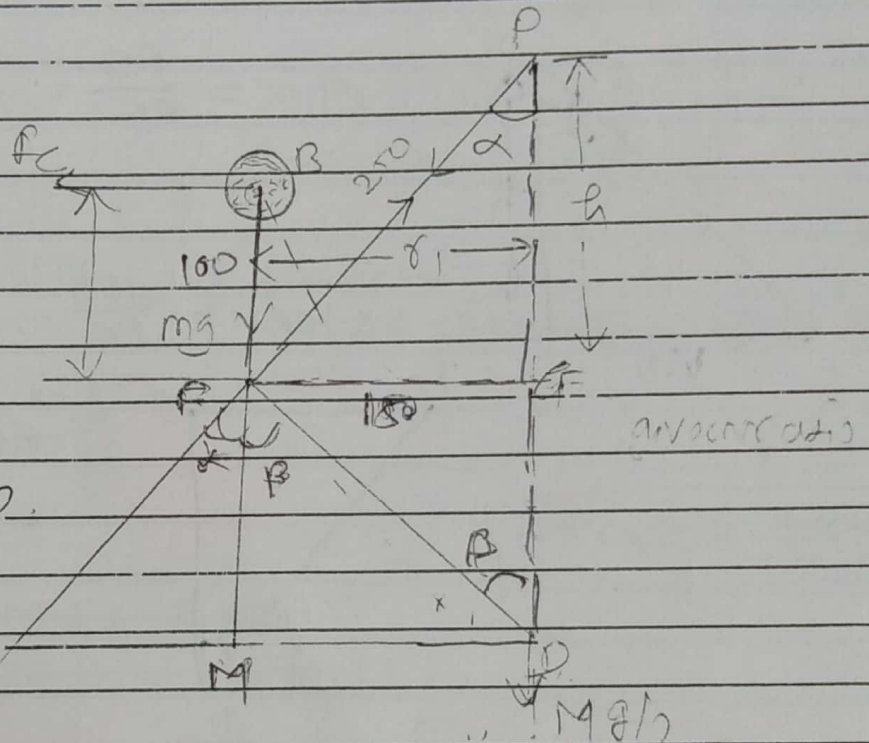 P
Fc
B
250
α
h
100
r1
mg
F
150
α
β
β
M
D
Mg/2